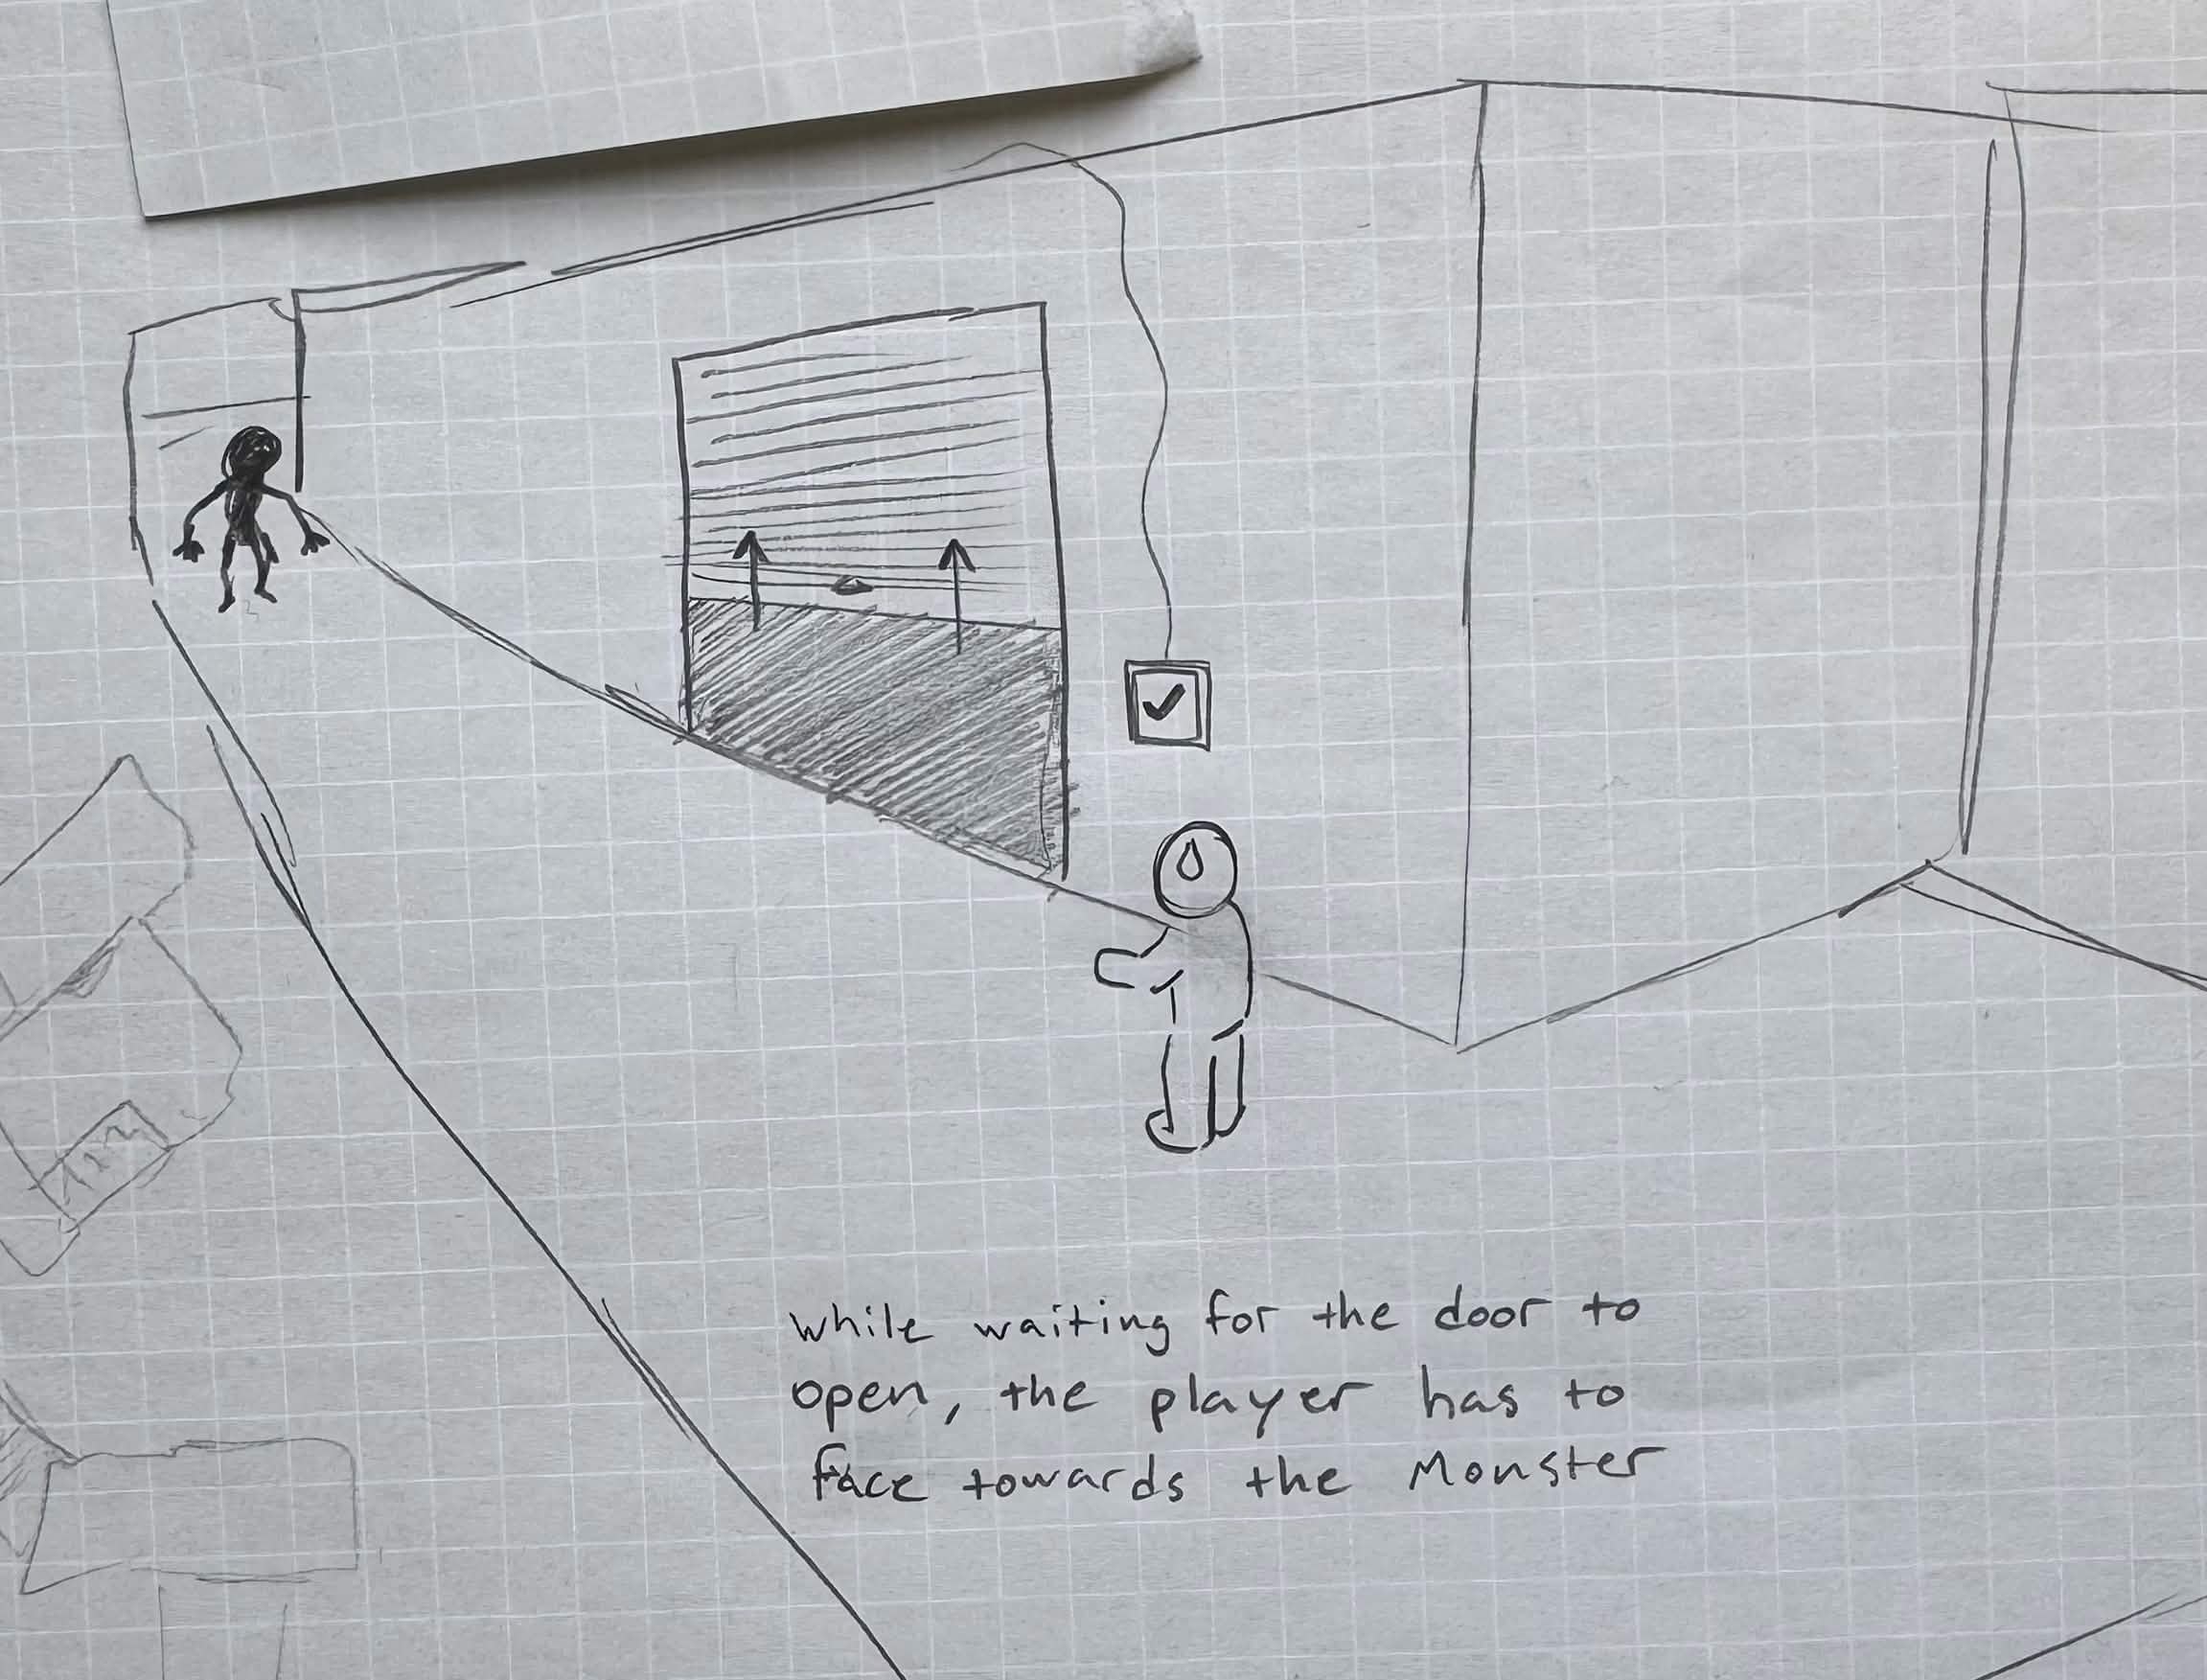 while waiting for the door to
open, the player has to
face towards the Monster